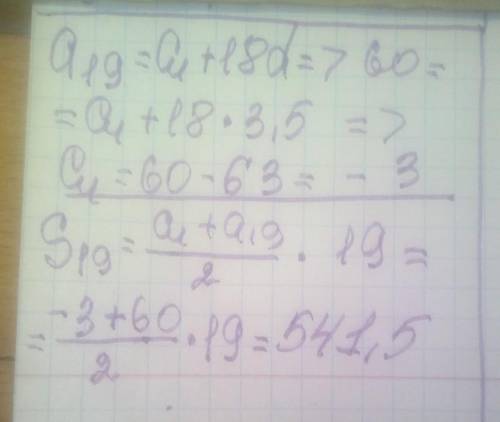 a₁₉ = a₁ + 18d => 60 =
= a₁ + 18 · 3,5 =>
a₁ = 60 - 63 = - 3
S₁₉ = (a₁ + a₁₉)/2 · 19 =
= (-3 + 60)/2 · 19 = 541,5